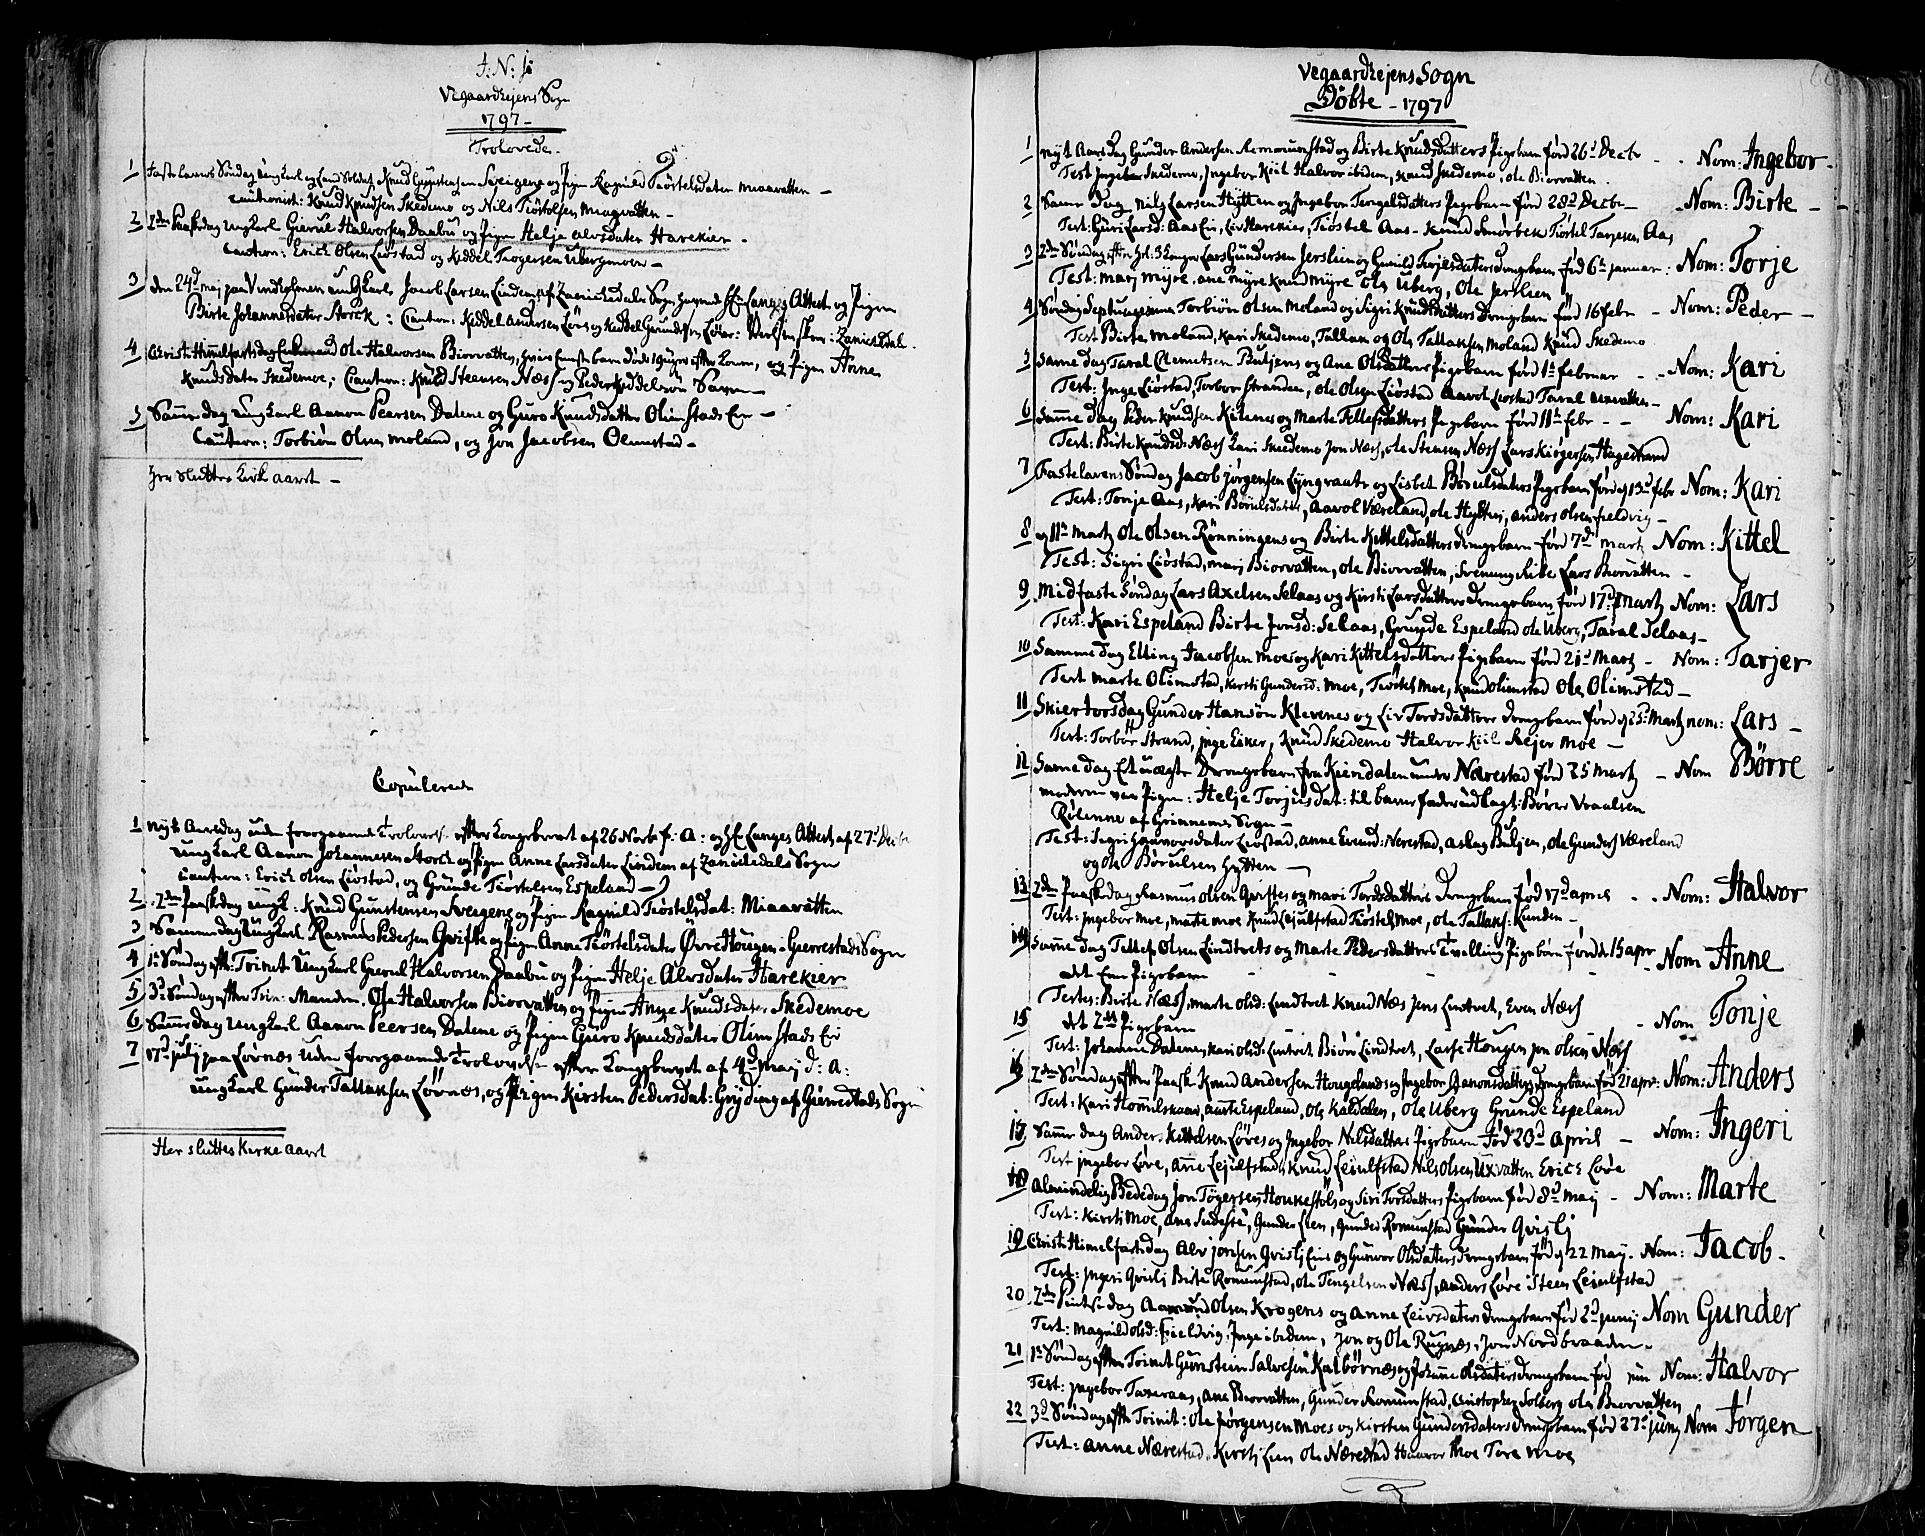 J: N: J:
Vegaardhejens Sogn
1797 -
Trolovede.
1 Fastelavns Søndag ungkarl og Land Soldat Knud Gunstensen Sveigens og Pigen Ragnild Tiøstelsdater Miaavatten -
Cautionist: Knud Knudsen Skedemo og Nils Tiøstolsen Miaavatten -
2 2den Paaskedag ungkarl Gierul Halvorsen Daabu og Pigen Helje Alvsdater Harekier -
Caution: Erich Olsen Liøstad og Keddel Uberg
3 den 24d maj paa Vindholmen ungkarl Jacob Larsen Lindem af Zanikedals Sogn Hr: Langes Attest og Pigen
Birte Johannesdater Storck: Caution: Keddel Andersen Løv og
4 Christi Himmelfarts dag Enkemand Ole Halvorsen Biorvatten, og Pigen Anne
Knudsdater Skedemoe, Caution: Knud Steensen Næss og Peder Keddelsøn
5 Samme dag ungkarl Aanon Peersen Dalene og Guro Knudsdatter Olimstads Eie -
Caution: Torbiøn Olsen Moland, og Jon Jacobsen Olimstad -
her sluttes Kirke aaret -
Copulerede
1 Nyt Aarsdag uden foregaaende Trolovelse efter Kongebrevet af 26 Novbr f: A: og Hr Langes Attest af 27d Decbr
ungkarl Aanon Johannesen Storck og Pigen Anne Larsdater Lindem af Zanikedals Sogn
Caution: Erich Olsen Liøstad, og Grunde Tiøstelsen Espeland -
2 2den Paaskedag ungk: Knud Gunstensen Sveigens og Pigen Ragnild Tiøstelsdat: Miaavatten
3 Samme dag Ungkarl Rasmus Pedersen Qvifte og Pigen Anne Tiøstelsdater Øvre Hougen i Gierrestads Sogn
4 1d Søndag eft: Trinit Ungkarl Gierul Halvorsen Daabu og Pigen Helje Alvsdater Harekier
5 3d Søndag efter Trin: Manden Ole Halvorsen Biorvatten og Pigen Anne Knudsdater Skedemoe
6 Samme dag Ungkarl Aanon Peersen Dalene og Pigen Guro Knudsdater Olimstads Eie
7 17d julj paa Lovnæs uden foregaaende Trolovelse efter Kongebrevet af 4d Maj d: A:
ungkarl Gunder Tallaksen Løvnæs, og Pigen Kirsten Pedersdat: Gryding af Gierrestads Sogn
Her sluttes Kirke aaret
Vegaardhejens Sogn
Døbte - 1797
1 Nyt Aarsdag Gunder Andersen Romunstad og Birte Knudsdatters Pigebarn fød 26d Decbr - Nom: Ingebor -
Test Ingebor Skedemo, Ingebor Kiil Halvor ibidem, Knud Skedemo, Ole Biorvatten.
2 Samme Dag Nils Larsen Hytten og Ingebor Tengelsdatters Pigebarn fød 28d Decbr - Nom: Birte -
Test: Guri Larsd: Aas Eie, Liv Harekier, Tiøstel Aas - Knud Smørbek Tiøstel Tarjesen, Aas
3 2den Søndag efter Lars Gundersen Jerslien og Gunild Torjesdaters drengebarn fød 6te januar: Nom: Torje
Test: Marj Myre, Ane Myre Knud Myre Ole Uberg, Ole Jerslien
4 Søndag Septuagesima Torbiøn Olsen Moland og Sigri Knudsdatters Drengebarn fød 16 febr - Nom: Peder -
Test Birte Moland, Kari Skedemo, Tallak og Ole Tallaksen Moland Knud Skedemo
5 Samme dag Taral Clemetsen Buljens og Ane Olsdatters Pigebarn fød 1d Februar - Nom: Kari
Test: Inge Liøstad, Torbor Stranden, Ole Olsen Liøstad Aavol Liøstad Taral Miaavatten -
6 Samme dag Peder Knudsen Kilenes og Marte Tellefsdatters Pigebarn fød 11te Febr - - Nom: Kari
Test: Birte Knudsd: Næss Kari Skedemo Jon Næss, Ole Stensen Næss Lars Kiøgersen Hagestrand
7 Fastelavens Søndag Jacob Jørgensen Lyngraat og Lisbet Børulsdaters Pigebarn fød 13d febr Nom: Kari
Test: Tonje Aas, Kari Børulsdater, Aavol Væreland, Ole Hytten, Anders Olsen Fieldvig -
8 11te Martz Ole Olsen Rønningens og Birte Kittelsdatters drengebarn fød 7d Martz Nom: Kittel
Test: Sigri Liøstad, Marj Biorvatten, Ole Biorvatten, Lars Biorvatten -
9 Midfaste Søndag Lars Axelsen Selaas og Kirsti Larsdatters Drengebarn fød 17d Martz Nom: Lars
Test: Kari Espeland Birte Jonsd: Selaas, Grunde Espeland Ole Uberg, Taral Selaas -
10 Samme dag Elling Jacobsen Moes og Kari Kittelsdatters Pigebarn fød 21d Martz - Nom: Tarjer
Test Marte Olimstad, Kersti Gundersd: Moe, Tiøstel Moe, Knud Olimstad Ole Olimstad -
11 Skiertorsdag Gunder Hansøn Klevenes og Liv Tordsdatters drengebarn fød 25d Martz nom: Lars -
Test: Torbor Strand, Inge Eiker, Knud Skedemo Halvor Kiil Rejer Moe -
12 Samme dag Et uægte Drengebarn fra Kierdalen under Nærestad fød 25 Martz - Nom Børre
moderen var Pigen: Helje Torjusdat: til barnefader udlagt: Børre Vraalsen
Rølenne af Grinnems Sogn -
Test: Segri Gunnorsdater Liøstad, Anne Evend: Nærestad, Aslag Buljen, Ole Gunders Væreland
og Ole Børulsen Hytten -
13 2den Paaskedag Rasmus Olsen Qviftes og Mari Tordsdatters Drengebarn fød 17d april - - Nom: Halvor
Test: Ingebor Moe, Marte Moe Knud Lejulfstad Tiøstel Moe, Ole Tallaks: Lunden -
14 Samme dag Tellef Olsen Lindtvets og Marte Pedersdatters Tvilling Pigebørn fød d: 15 apr - Nom Anne
det Ene Pigebarn - - - -
Testes: Birte Næss, Marte Olsd: Lindtvet Knud Næs Jens Lindtvet, Even Næss
15 det 2det Pigebarn - Nom Tonje
Test: Johanne Dalene, Kari Olsd: Lintvet Biørn Lindtvet, Lasse Hougen Jon Olsen Næss
16 2den Søndag efter Paask Knud Andersen Hougelands og Ingebor Aanonsdatters drengebarn fød 21 apr: Nom: Anders
Test: Kari Hommelskaar, Anne Espeland, Ole Kaldalen, Ole Uberg Grunde Espeland
17 Samme dag Anders Kittelsen Løves og Ingebor Nilsdatters Pigebarn fød 20d april - Nom: Ingeri
Test Ingebor Løve, Anne Lejulfstad, Knud Lejulfstad Nils Olsen Uxvatten Erich Løve
18 Almindelig Bededag Jon Tøgersen Houkestøls og Siri Torsdatters Pigebarn fød 8d Maij - Nom: Marte
Test: Kirsti Moe, Ane Gunder Lien, Gunder Romunstad Gunder Qvislj
19 Christi Himelfartsdag Alv Jonsen Qvislj Eie og Gunvor Olsdaters drengebarn fød 22 Maij. Nom: Jacob -
Test: Ingeri Qvislj Birte Romunstad, Ole Tengelsen Næss, Anders Løve Steen Lejulfstad
20 2den Pintse dag Aamund Olsen Krogens og Anne Leivsdaters drengebarn fød 2d junij Nom Gunder
Test: Magnild Olsd: Fieldvig, Inge ibidem, Jon og Ole Rugnæs, Jon Nordbraaden.
21 1ste Søndag efter Trinit Gunstein Salvesen Kalbørnæs og Johanne Olsdaters drengebarn fød juni Nom: Halvor
Test: Ingebor Taxeraas, Ane Biorvatten, Gunder Romunstad, Christopher Solberg Ole Biorvatten
22 3d Søndag efter Trinit: Ole Jørgensen Moes og Kirsten Gundersdaters drengebarn fød 27de junij Nom Jørgen
Test: Anne Nærestad, Kirstj Lien Ole Nærestad Halvor Moe Tore Moe